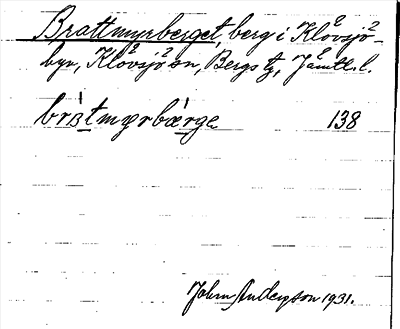 Brattmyrberget, berg i Klövsjö-
byn, Klövsjö sn, Bergs tg, Jämtl. l.
brat myrbærge 138
John Anderson 1931.